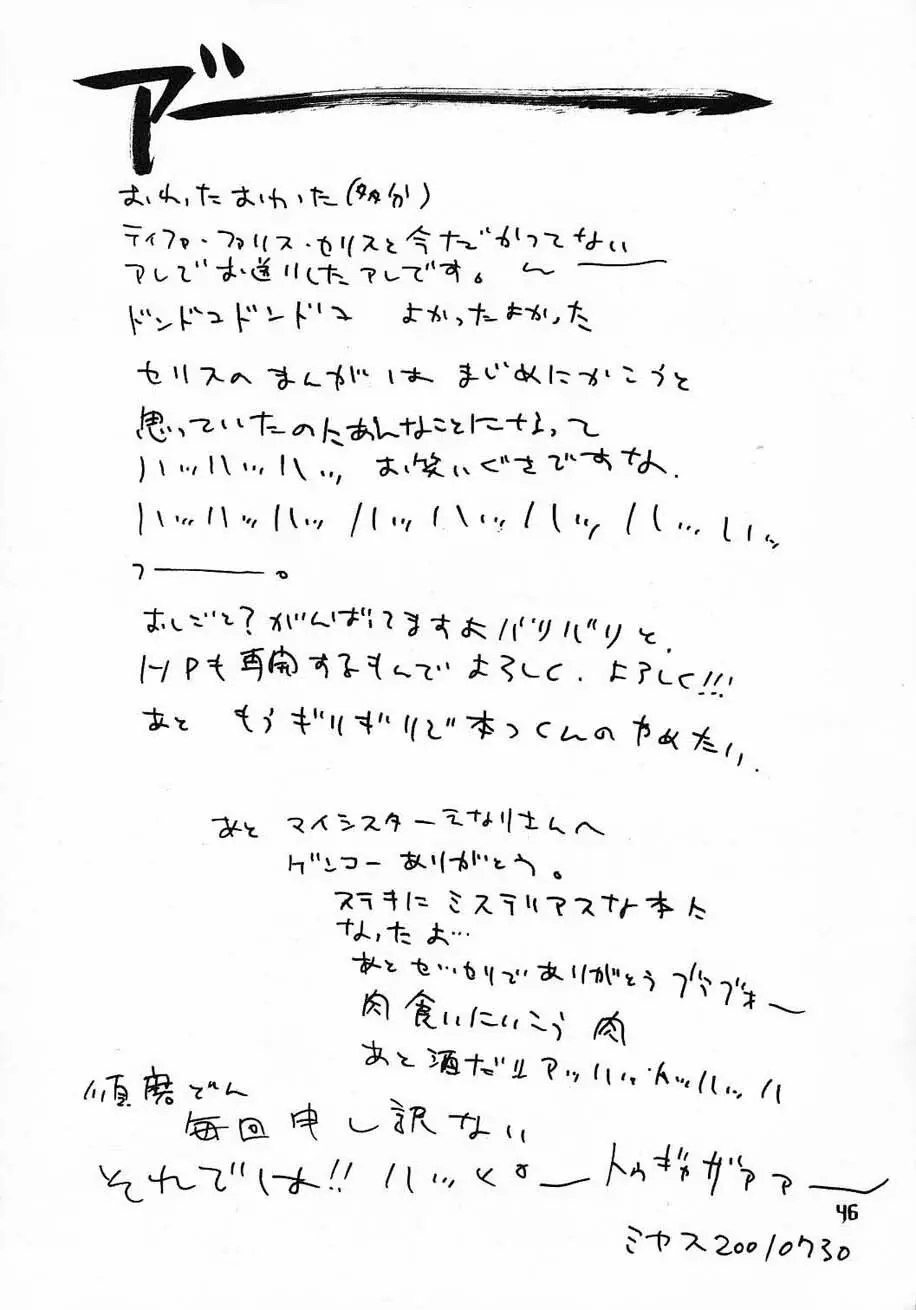 ア゛ー
おわったおわった(多分)
ティファ・ファリス・セリスと今だかつてない
アレでお送りしたアレです。
ドンドコドンドコ よかったよかった
セリスのまんがは まじめにかこうと
思っていたのにあんなことになって
ハッハッハッ お笑いぐさですな.
ハッハッハッハッハッハッハッハッ
フー。
おしごと?がんばってますよバリバリと.
HPも再開するもんでよろしく.よろしく!!!
あと もうギリギリで本つくんのやめたい.
あと マイシスターえなりさんへ
ゲンコーありがとう。
ステキにミステリアスな本に
なったよ…
あとせいりでありがとう
肉食いにいこう 肉
あと酒だ!! アッハッハッハッハ
順磨どん
毎回申し訳ない
それでは!!
46
ミヤス20010730